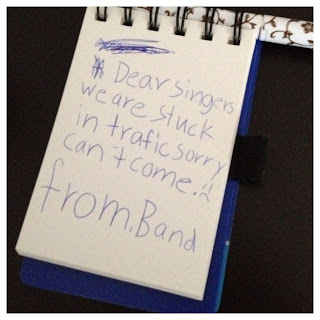 Dear singers
we are stuck
in trafic sorry
can't come. :(
from. Band